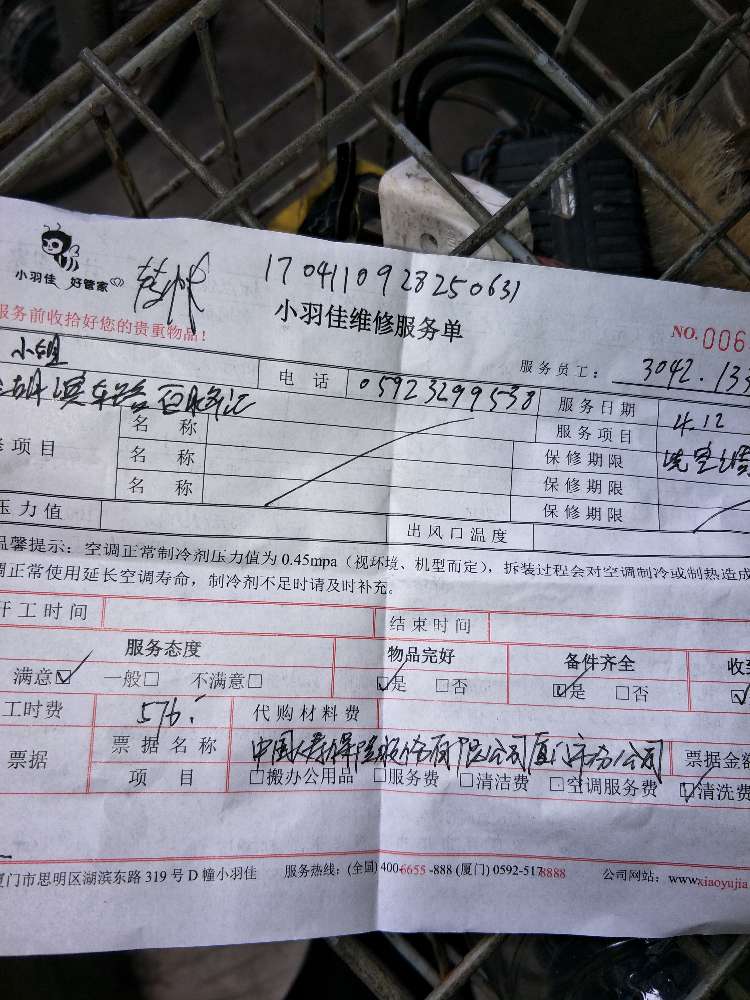 小羽佳 好管家
1704110928250631
服务前收拾好您的贵重物品！
小羽佳维修服务单
NO. 006
小姐
电 话 05923299538
服务员工： 3042.133
服务日期 4.12
湖滨东路
名 称
服务项目
修项目
名 称
保修期限
名 称
保修期限
保修期限
压力值
出风口温度
温馨提示：空调正常制冷剂压力值为 0.45mpa（视环境、机型而定），拆装过程会对空调制冷或制热造成
调正常使用延长空调寿命，制冷剂不足时请及时补充。
开工时间
结束时间
服务态度 物品完好 备件齐全 收
满意☑ 一般□ 不满意□ ☑是 □否 ☑是 □否
工时费 576. 代购材料费
票据 票据名称 中国人寿保险股份有限公司厦门市分公司 票据金额
项 目 □搬办公用品 □服务费 □清洁费 □空调服务费 ☑清洗费
厦门市思明区湖滨东路 319 号 D 幢小羽佳 服务热线：(全国) 400-6655-888 (厦门) 0592-5178888 公司网站：www.xiaoyujia